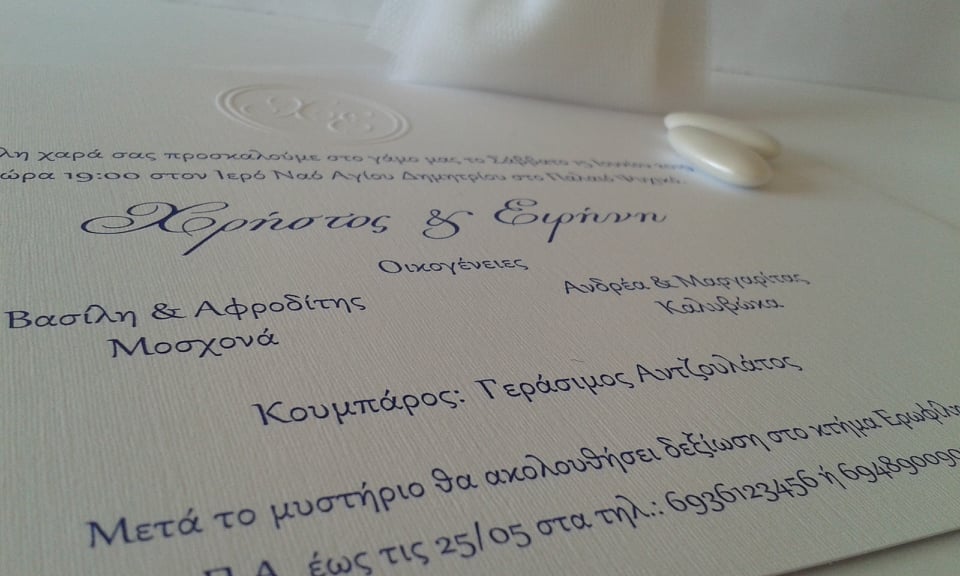 ΧΕ
λη χαρά σας προσκαλούμε στο γάμο μας το Σάββατο 15 Ιουνίου
ώρα 19:00 στον Ιερό Ναό Αγίου Δημητρίου στο Παλαιό Ψυχικό.
Χρήστος & Ειρήνη
Οικογένειες
Βασίλη & Αφροδίτης
Μοσχονά
Ανδρέα & Μαργαρίτας
Καλυβώκα
Κουμπάρος: Γεράσιμος Αντζουλάτος
Μετά το μυστήριο θα ακολουθήσει δεξίωση στο κτήμα Ερωφίλη
Π.Α. έως τις 25/05 στα τηλ.: 6936123456 ή 694890090